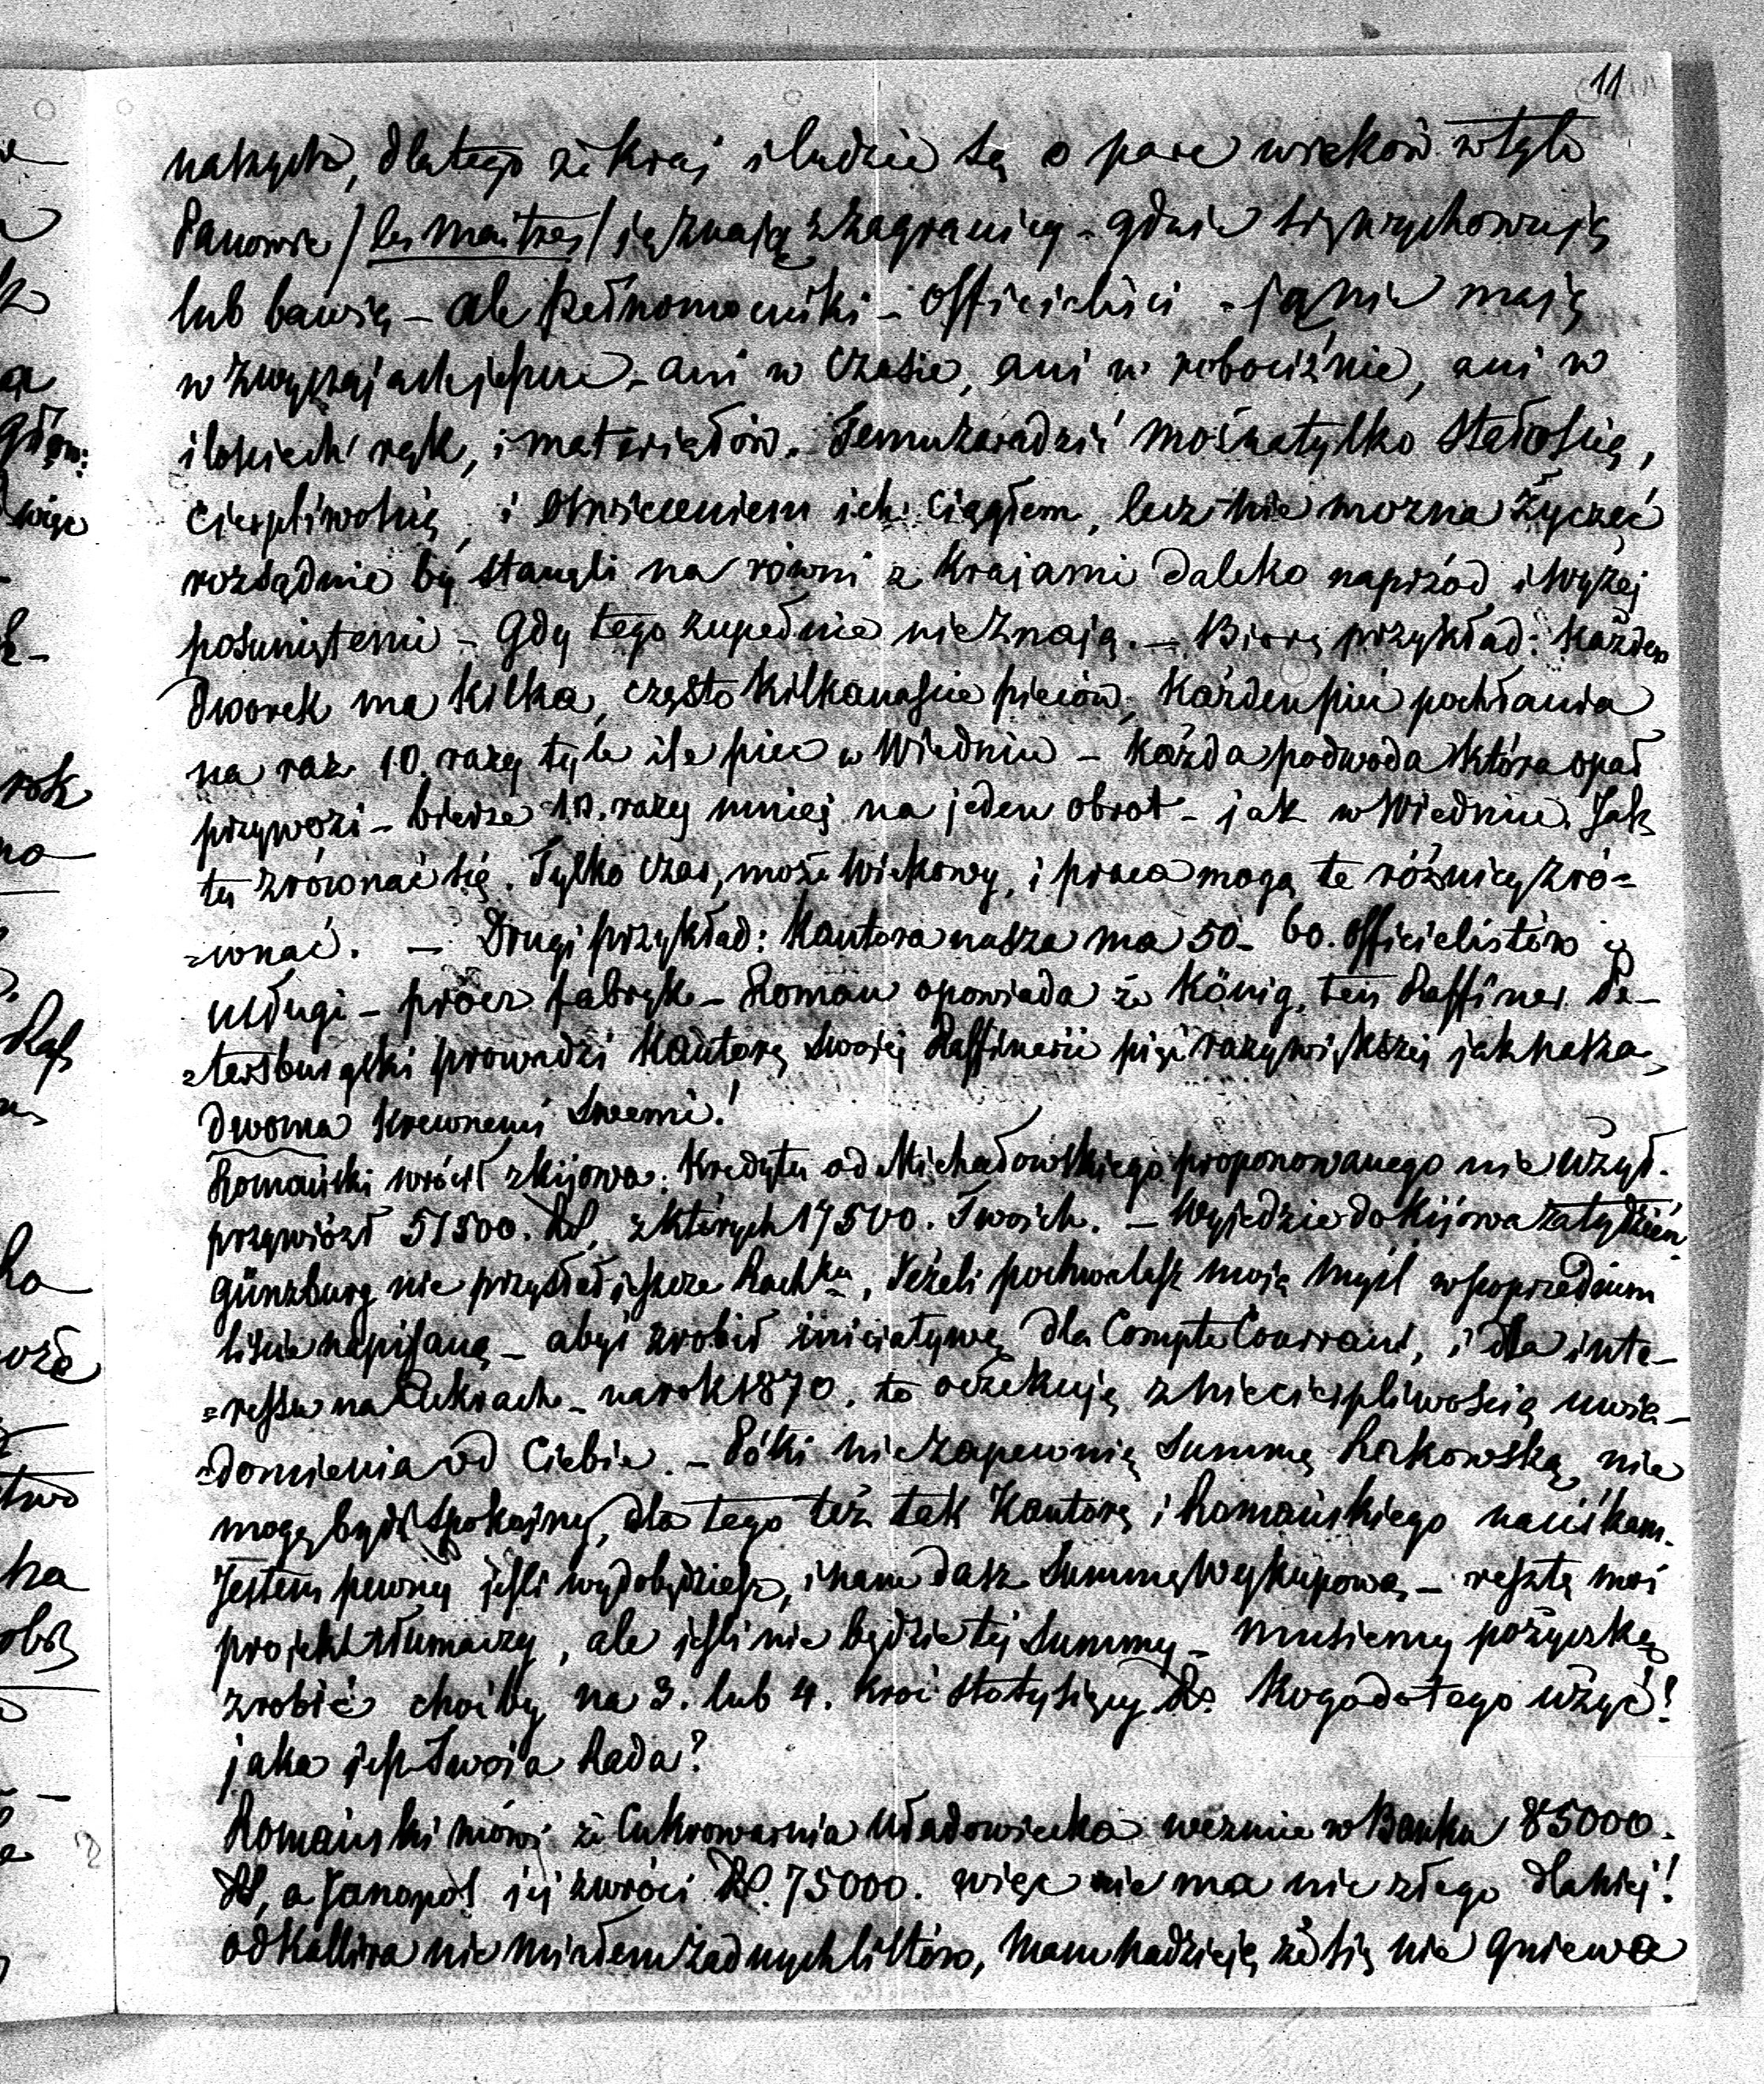 11
naszych, dlatego że kraj i ludzie są o parę wieków w tyle
Panowie / les maitres / ją znają z zagranicy – gdzie się wychowują
lub bawią – ale pełnomocniki – officialiści – ją nie mają
w zwyczajach jeszcze – ani w czasie, ani w robociźnie, ani w
ilościach rąk, i materiałów. Temu zaradzić można tylko stałością,
cierpliwością, i oświeceniem ich ciągłem, lecz nie można życzyć
rozsądnie by stanęli na równi z krajami daleko naprzód i wyżej
posuniętemi – gdy tego zupełnie nie znają. – Biorę przykład: każden
dworek ma kilka, często kilkanaście pieców, każden piec pochłania
na raz 10. razy tyle ile piec w Wiedniu – każda podwoda która opał
przywozi – bierze 10. razy mniej na jeden obrot – jak w Wiedniu. Jak
tu zrównać się. Tylko czas, może wiekowy, i praca mogą te różnicy zró=
=wnać. – Drugi przykład: Kantora nasza ma 50– 60. officialistów i
usługi – prócz fabryk – Roman opowiada że König, ten Raffiner Pe–
=tersburgski prowadzi Kantorę swojej Raffinerii pięć razy większej jak nasza,
dwoma krewnemi swemi!
Romański wrócił z Kijowa. Kredytu od Michałowskiego proponowanego nie użył.
przywiózł 51500. RS, z których 17500. Twoich. – Wyjedzie do Kijowa za tydzień.
Günzburg nie przysłał jeszcze Rachku, Jeżeli pochwalasz moją myśl w poprzednim
liście napisaną – abyś zrobił iniciatywę dla Compte Courrant, i dla inte–
=ressu na Cukrach – na rok 1870. to oczekuję z niecierpliwością uwia–
=domienia od Ciebie. – Póki nie zapewnię Summę Rakowską, nie
mogę bydź spokojny, dla tego też tak Kantorę i Romańskiego naciskam.
Jestem pewny jeśli wydobędziesz, i nam dasz Summę Wykupową – resztę mój
projekt tłumaczy, ale jeśli nie będzie tej Summy – musiemy pożyczkę
zrobić choćby na 3. lub 4. kroć stotysięcy Rs. Kogo do tego użyć!
jaka jest Twoja Rada?
Romański mówi że Cukrowarnia Uładowiecka weźmie w Banku 85000.
RS, a Janopol jej zwróci RS. 75000. więc nie ma nic złego dla niej!
od Kallira nie miałem żadnych listów, mam nadzieję że się nie gniewa